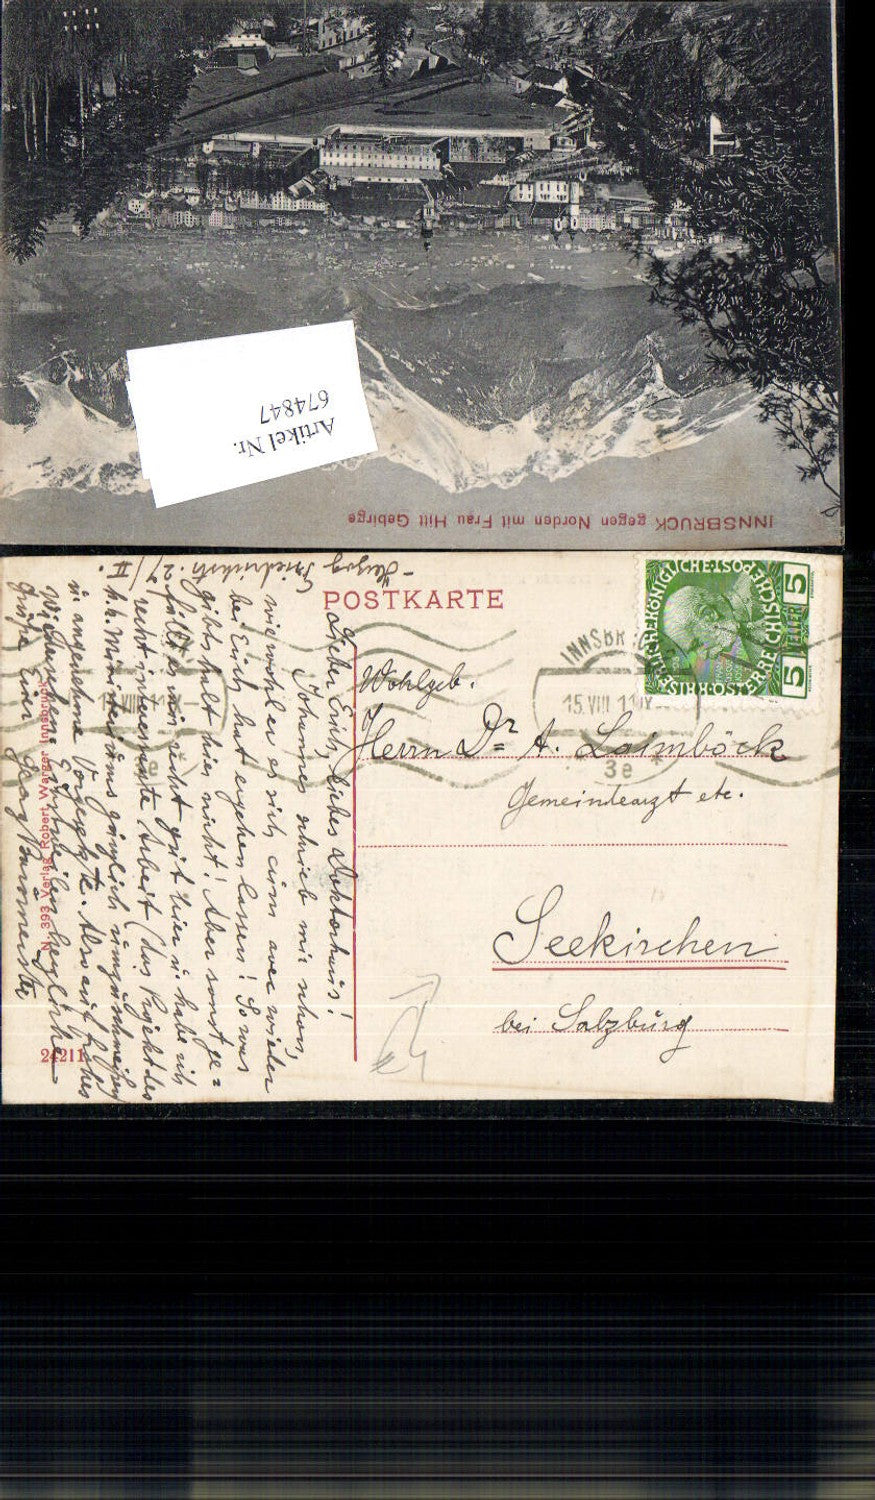 INNSBRUCK gegen Norden mit Frau Hitt Gebirge
Artikel Nr.
674847
POSTKARTE
KAISERLICHE KÖNIGLICHE ÖSTERREICHISCHE POST
5 HELLER 5
INNSBRUCK
15 VIII 11 IX
3e *
Wohlgeb.
Herrn Dr. A. Laimböck
Gemeindearzt etc.
Seekirchen
bei Salzburg
Lieber Erich, liebes Doktorhaus!
Johannes schrieb mir schon,
wie wohl er es sich wieder
bei Euch hat ergehen lassen! So was
gibts halt hier nicht! Aber sonst ge=
fällt es mir recht gut hier u. habe ich
recht interessante Arbeit (das Projekt des
k.k. Ministeriums gänzlich umzuschmeißen)
u. angenehme Vorgesetzte. Also auf frohes
Wiedersehen! Einstweilen herzliche
Grüße Euer Georg
Herzog Friedrichstr. 21/II.
N. 393 Verlag Robert Warger Innsbruck
24211